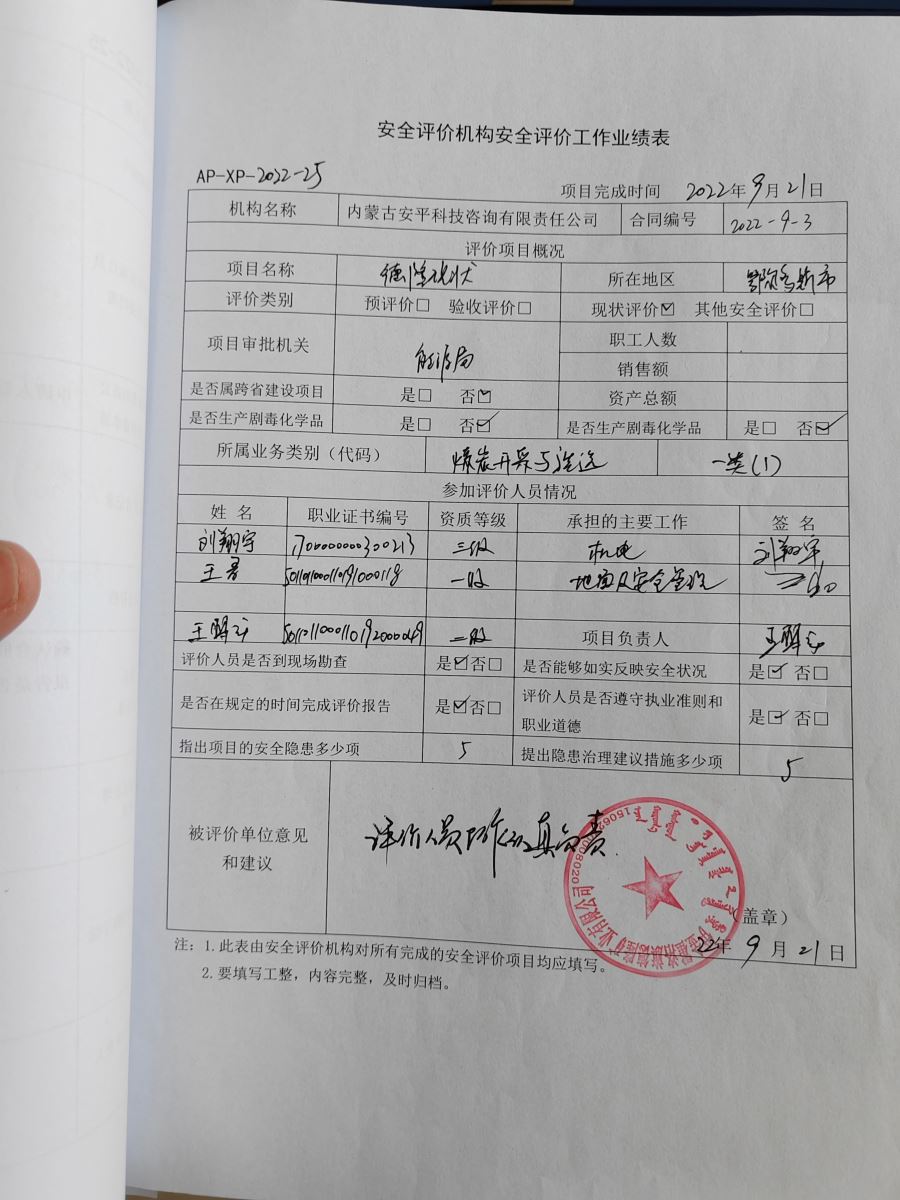 安全评价机构安全评价工作业绩表
AP-XP-2022-25
项目完成时间 2022年9月21日
机构名称 内蒙古安平科技咨询有限责任公司 合同编号 2022-9-3
评价项目概况
项目名称 德隆现状 所在地区 鄂尔多斯市
评价类别 预评价□ 验收评价□ 现状评价☑ 其他安全评价□
项目审批机关 能源局 职工人数
销售额
是否属跨省建设项目 是□ 否☑ 资产总额
是否生产剧毒化学品 是□ 否☑ 是否生产剧毒化学品 是□ 否☑
所属业务类别（代码） 煤炭开采与洗选 一类(1)
参加评价人员情况
姓 名 职业证书编号 资质等级 承担的主要工作 签 名
刘翔宇 1700000000300213 三级 机电 刘翔宇
王 一级 地面及安全管理
二级 项目负责人
评价人员是否到现场勘查 是☑否□ 是否能够如实反映安全状况 是☑ 否□
是否在规定的时间完成评价报告 是☑否□ 评价人员是否遵守执业准则和
职业道德 是☑ 否□
指出项目的安全隐患多少项 5 提出隐患治理建议措施多少项 5
被评价单位意见
和建议
评价人员工作认真负责.
（盖章）
22年9月21日
注：1.此表由安全评价机构对所有完成的安全评价项目均应填写。
2.要填写工整，内容完整，及时归档。